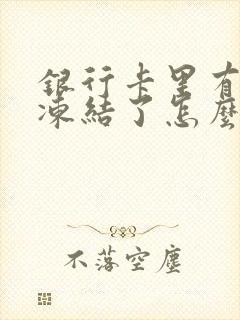 銀行卡里有
凍結了怎麼
不落空塵